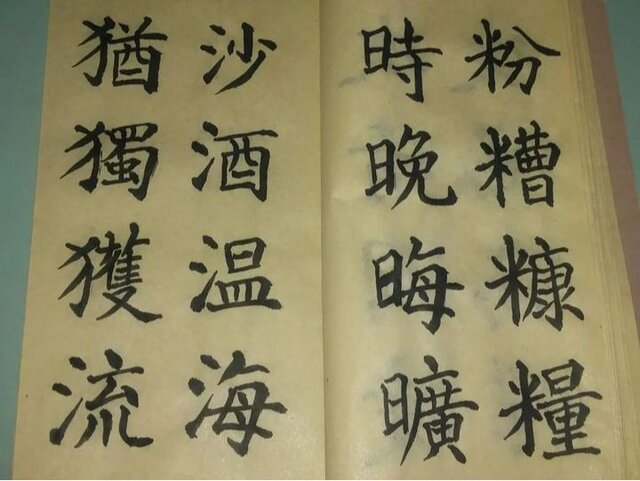 粉糟糠糧
時晚晦曠
沙酒温海
猶獨獲流